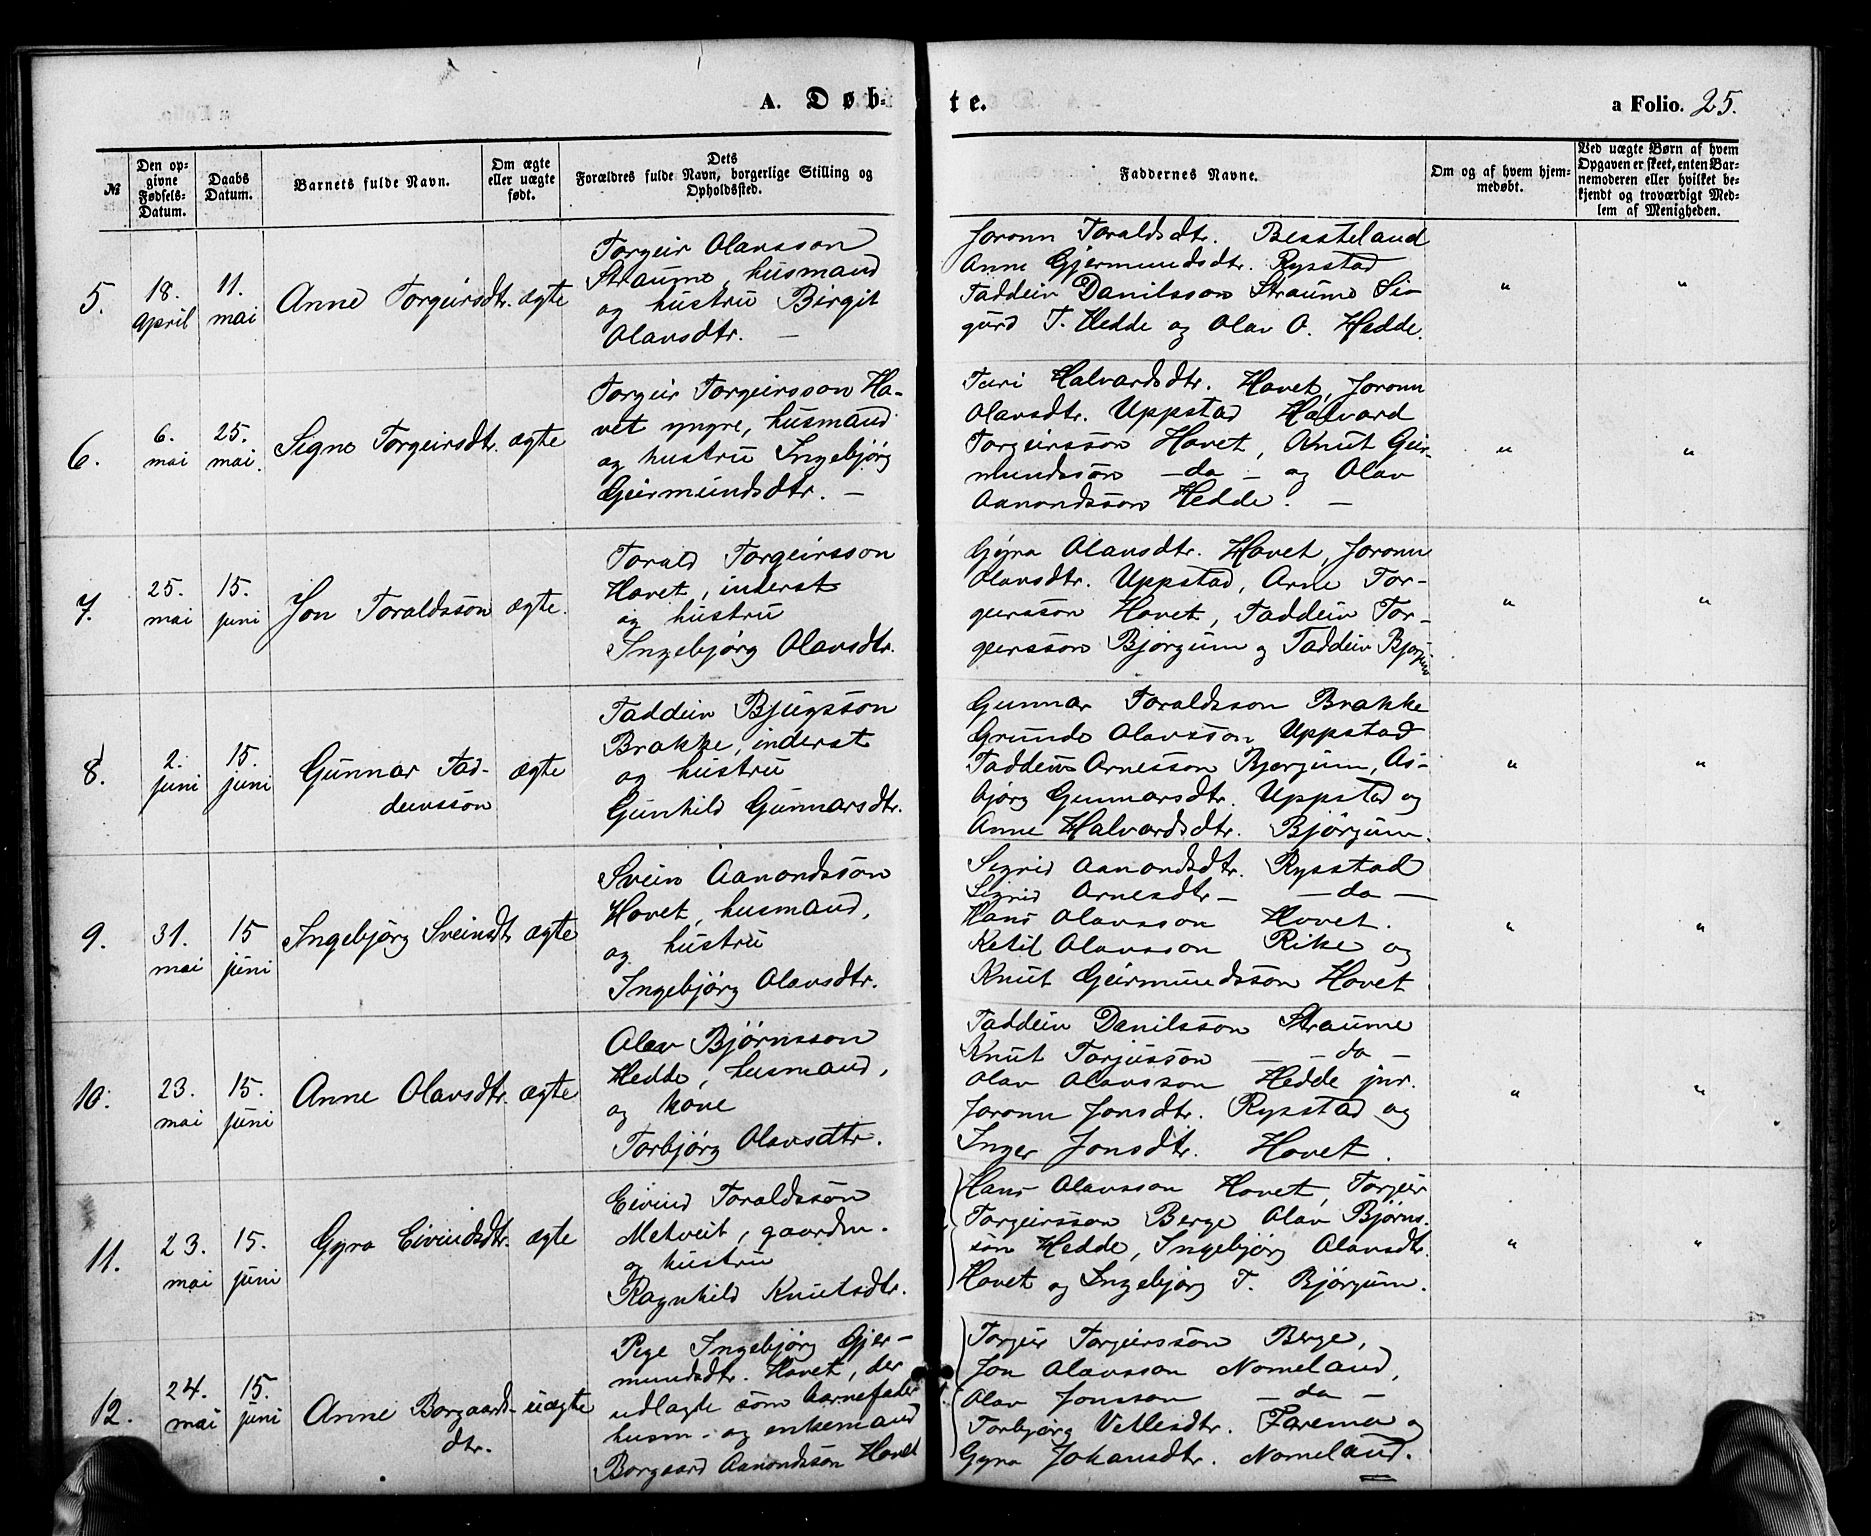 A. Døb-
te.
a Folio. 25.
№
Den op-
givne
Fødsels-
Datum.
Daabs
Datum.
Barnets fulde Navn.
Om ægte
eller uægte
født.
Dets
Forældres fulde Navn, borgerlige Stilling og
Opholdssted.
Faddernes Navne.
Om og af hvem hjem-
medøbt.
Ved uægte Børn af hvem
Opgaven er skeet, enten Bar-
nemoderen eller hvilket be-
kjendt og troværdigt Med-
lem af Menigheden.
5.
18.
April
11.
mai
Anne Torgeirsdtr.
ægte
Torgeir Olavsson
Straume, husmand
og hustru Birgit
Olavsdtr. —
Joronn Toraldsdtr. Bessteland
Anne Gjermundsdtr. Rysstad
Taddeiv Danilsson Straume Si-
gurd T. Hedde og Olav O. Hedde.
"
"
6.
6.
mai
25.
mai.
Signe Torgeirsdtr.
ægte
Torgeir Torgeirsson Ho-
vet yngre, husmand
og hustru Ingebjørg
Geirmundsdtr. —
Turi Halvardsdtr. Hovet, Joronn
Olavsdtr. Uppstad Halvard
Torgeirsson Hovet, Knut Geir-
mundsson — da — og Olav
Aanondsson Hedde. —
"
"
7.
25.
mai
15.
juni
Jon Toraldsson
ægte.
Torald Torgeirsson
Hovet, inderst
og hustru
Ingebjørg Olavsdtr.
Gyro Olavsdtr. Hovet, Joronn
Olavsdtr. Uppstad, Arne Tor-
geirsson Hovet, Taddeiv Tor-
geirsson Bjørgum og Taddeiv Bjørgum
"
"
8.
2.
juni
15.
juni
Gunnar Tad-
deivsson
ægte
Taddeiv Bjugsson
Brokke, inderst
og hustru
Gunhild Gunnarsdtr.
Gunnar Toraldsson Brokke
Grunde Olavsson Uppstad
Taddeiv Arnesson Bjørgum, As-
bjørg Gunnarsdtr. Uppstad og
Anne Halvardsdtr. Bjørgum.
"
"
9.
31.
mai
15
juni
Ingebjørg Sveinsdt
ægte
Svein Aanondsson
Hovet, husmand,
og hustru
Ingebjørg Olavsdtr.
Sigrid Aanondsdtr. Rysstad
Sigrid Arnesdtr — — da —
Hans Olavsson Hovet.
Ketil Olavsson Rike og
Knut Geirmundsson Hovet
"
"
10.
23.
mai
15.
juni
Anne Olavsdtr.
ægte
Olav Bjørnsson
Hedde, husmand,
og kone
Torbjørg Olavsdtr.
Taddeiv Danilsson Straume
Knut Torjusson — da —
Olav Olavsson Hedde jnr.
Joronn Jonsdtr. Rysstad og
Inger Jonsdtr. Hovet.
"
"
11.
23.
mai
15.
juni
Gyro Eivindsdtr.
ægte
Eivind Toraldsson
Metveit, gaardm.
og hustru
Ragnhild Knutsdtr.
Hans Olavsson Hovet, Torgeir
Torgeirsson Berge Olav Bjørns-
son Hedde, Ingebjørg Olavsdtr.
Hovet og Ingebjørg T. Bjørgum.
"
"
12.
24.
mai
15.
juni
Anne Borgaards-
dtr.
uægte
Pige Ingebjørg Gjer-
mundsdtr. Hovet, der
udlagte som barnefader
husm— og enkemand
Borgaard Aanondsson Hovet
Torgeir Torgeirsson Berge,
Jon Olavsson Nomeland,
Olav Jonsson — da —
Torbjørg Vetlesdtr. Faremo og
Gyro Johansdtr. Nomeland.